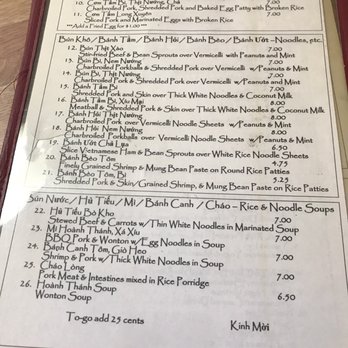 10. Cơm Tấm Bì, Thịt Nướng, Chả
Charbroiled Pork, Shredded Pork and Baked Egg Patty with Broken Rice
11. Cơm Tấm Long Xuyên 7.00
Sliced Pork and Marinated Eggs with Broken Rice
***Add a Fried Egg for $1.00 ***
Bún Khô / Bánh Tằm / Bánh Hỏi / Bánh Bèo / Bánh Ướt -Noodles, etc.
12. Bún Thịt Xào 7.00
Stirfried Beef & Bean Sprouts over Vermicelli with Peanuts and Mint
13. Bún Bì, Nem Nướng 7.00
Charbroiled Porkballs & Shredded Pork over Vermicelli w/Peanuts & Mint
14. Bún Bì, Thịt Nướng 7.00
Charbroiled Pork & Shredded Pork over Vermicelli w/Peanuts & Mint
15. Bánh Tằm Bì 7.00
Shredded Pork and Skin over Thick White Noodles & Coconut Milk
16. Bánh Tằm Bì, Xíu Mại 8.00
Meatball & Shredded Pork & Skin over Thick White Noodles & Coconut Milk
17. Bánh Hỏi Thịt Nướng 8.00
Charbroiled Pork over Vermicelli Noodle Sheets w/Peanuts & Mint
18. Bánh Hỏi Nem Nướng 8.00
Charbroiled Porkballs over Vermicelli Noodle Sheets w/Peanuts & Mint
19. Bánh Ướt Chả Lụa 6.50
Slice Vietnamese Ham & Bean Sprouts over White Rice Noodle Sheets
20. Bánh Bèo Tôm 4.75
Finely Grained Shrimp & Mung Bean Paste on Round Rice Patties
21. Bánh Bèo Tôm, Bì 5.25
Shredded Pork & Skin/Grained Shrimp, & Mung Bean Paste on Rice Patties
Bún Nước / Hủ Tiếu / Mì / Bánh Canh / Cháo - Rice & Noodle Soups
22. Hủ Tiếu Bò Kho 7.00
Stewed Beef & Carrots w/Thin White Noodles in Marinated Soup
23. Mì Hoành Thánh, Xá Xíu 7.00
BBQ Pork & Wonton w/Egg Noodles in Soup
24. Bánh Canh Tôm, Giò Heo 7.00
Shrimp & Pork w/Thick White Noodles in Soup
25. Cháo Lòng 7.00
Pork Meat & Intestines mixed in Rice Porridge
26. Hoành Thánh Soup 6.50
Wonton Soup
To-go add 25 cents Kính Mời